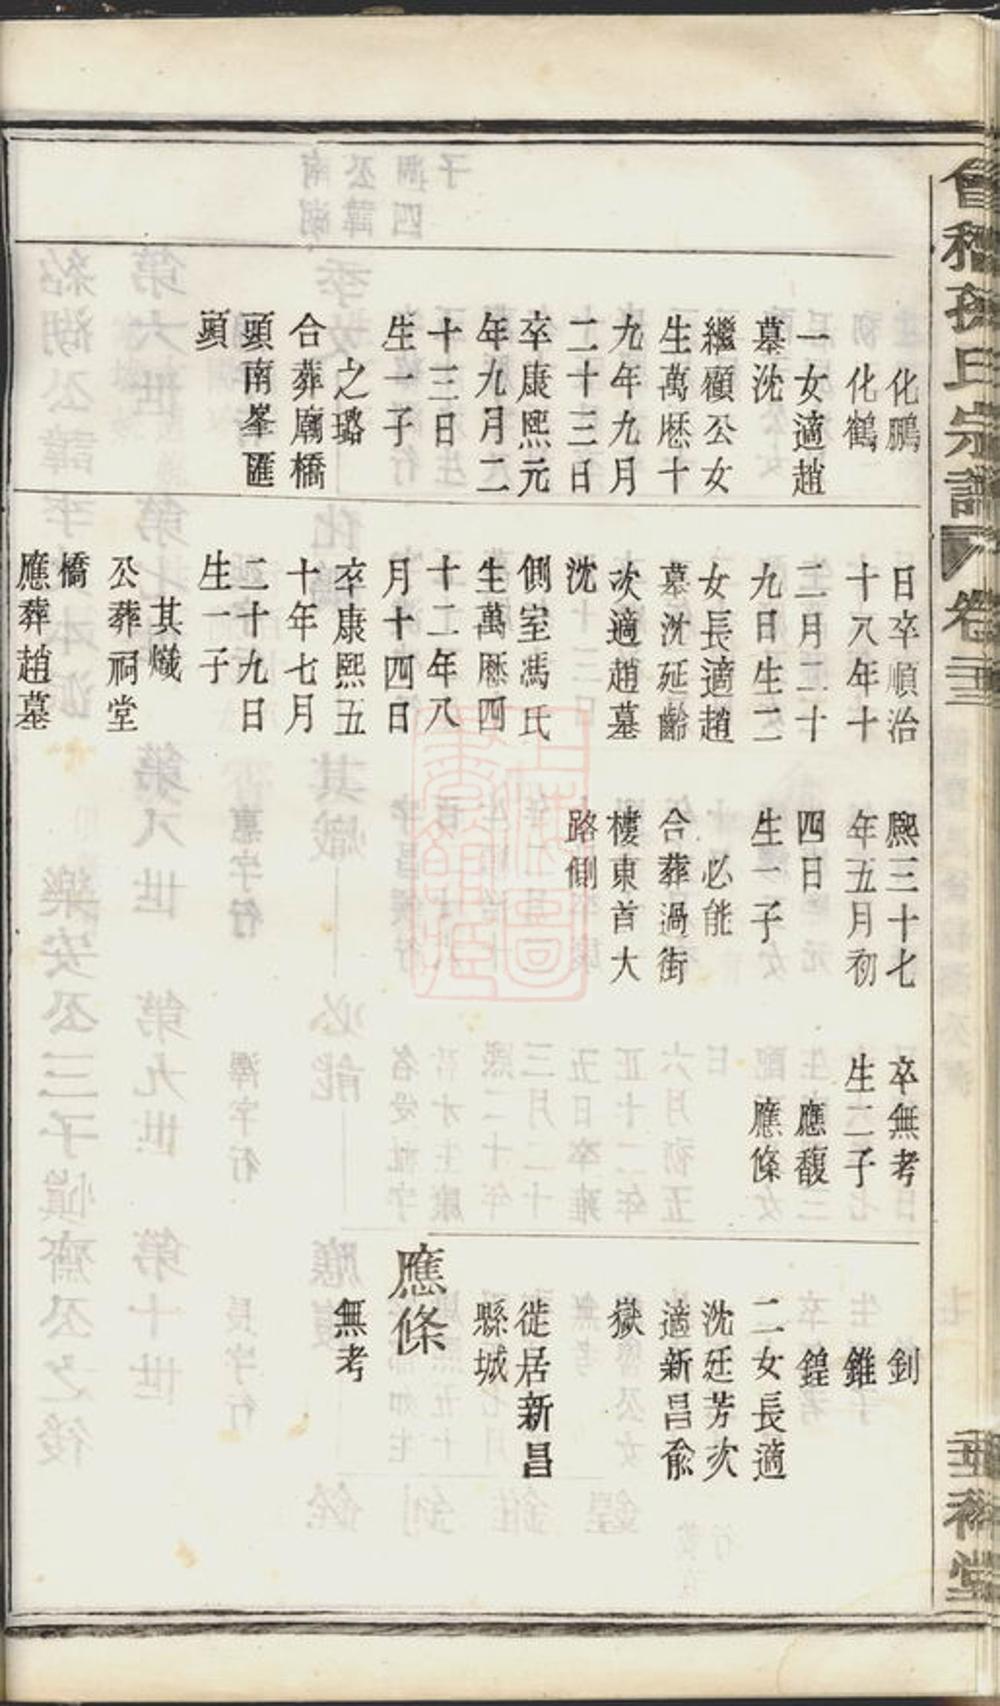 會稽孫氏宗譜
卷三
垂裕堂
化鵬
化鶴
一女適趙
墓沈
繼顧公女
生萬厯十
九年九月
二十三日
卒康熙元
年九月二
十三日
生一子
之璐
合葬廟橋
頭南峯匯
頭
日卒順治
十八年十
二月二十
九日生二
女長適趙
墓沈延齡
次適趙墓
沈
側室馮氏
生萬厯四
十二年八
月十四日
卒康熙五
十年七月
二十九日
生一子
其熾
公葬祠堂
橋
應葬趙墓
熙三十七
年五月初
四日
生一子
必能
合葬過街
樓東首大
路側
卒無考
生二子
應馥
應條
釗
錐
鍠
二女長適
沈廷芳次
適新昌兪
嶽
徙居新昌
縣城
應條
無考